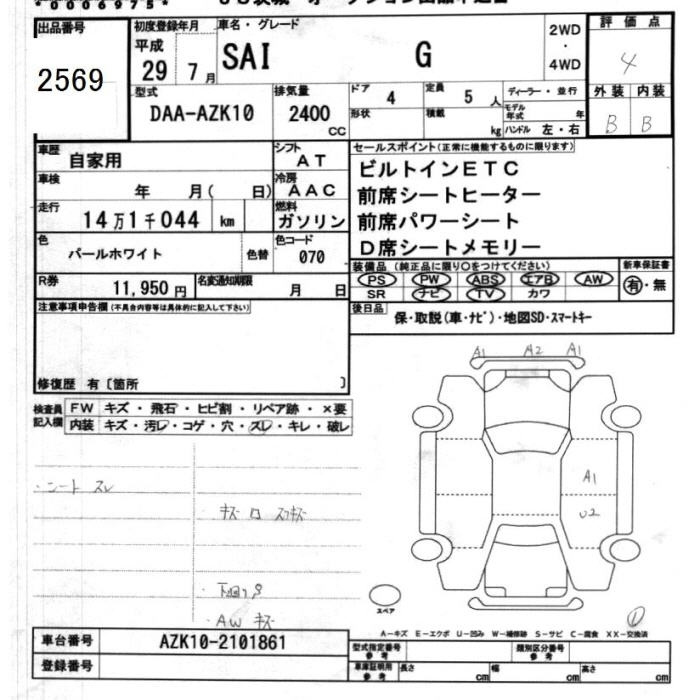 *0006975*
出品番号
2569
初度登録年月
平成
29 7月
車名・グレード
SAI G
2WD
・
4WD
評価点
4
外装 内装
B B
型式
DAA-AZK10
排気量
2400
CC
ドア
4
定員
5 人
形状
積載
kg
ディーラー・並行
モデル年式 年
ハンドル 左・右
車歴
自家用
シフト
AT
車検
年 月( 日)
冷房
AAC
走行
14万1千044 km
燃料
ガソリン
色
パールホワイト
色替
色コード
070
R券
11,950 円
名変通知期限
月 日
セールスポイント(正常に機能するものに限ります)
ビルトインETC
前席シートヒーター
前席パワーシート
D席シートメモリー
装備品 (純正品に限り○をつけてください)
PS PW ABS エアB AW
SR ナビ TV カワ
新車保証書
有・無
後日品
保・取説(車・ナビ)・地図SD・スマートキー
注意事項申告欄(不具合内容等は具体的に記入して下さい)
修復歴 有〔箇所 〕
検査員記入欄
FW キズ・飛石・ヒビ割・リペア跡・×要
内装 キズ・汚レ・コゲ・穴・スレ・キレ・破レ
・シート スレ
キズ
・下回り
・AW キズ
A1 A2 A1
A1
U2
スペア
①
A-キズ E-エクボ U-凹み W-補修跡 S-サビ C-腐食 XX-交換済
車台番号
AZK10-2101861
登録番号
型式指定番号
参考
類別区分番号
参考
車庫証明用
参考
長さ cm
幅 cm
高さ cm